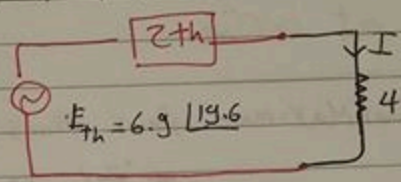 Zth
I
E_th = 6.9 ∠19.6
4